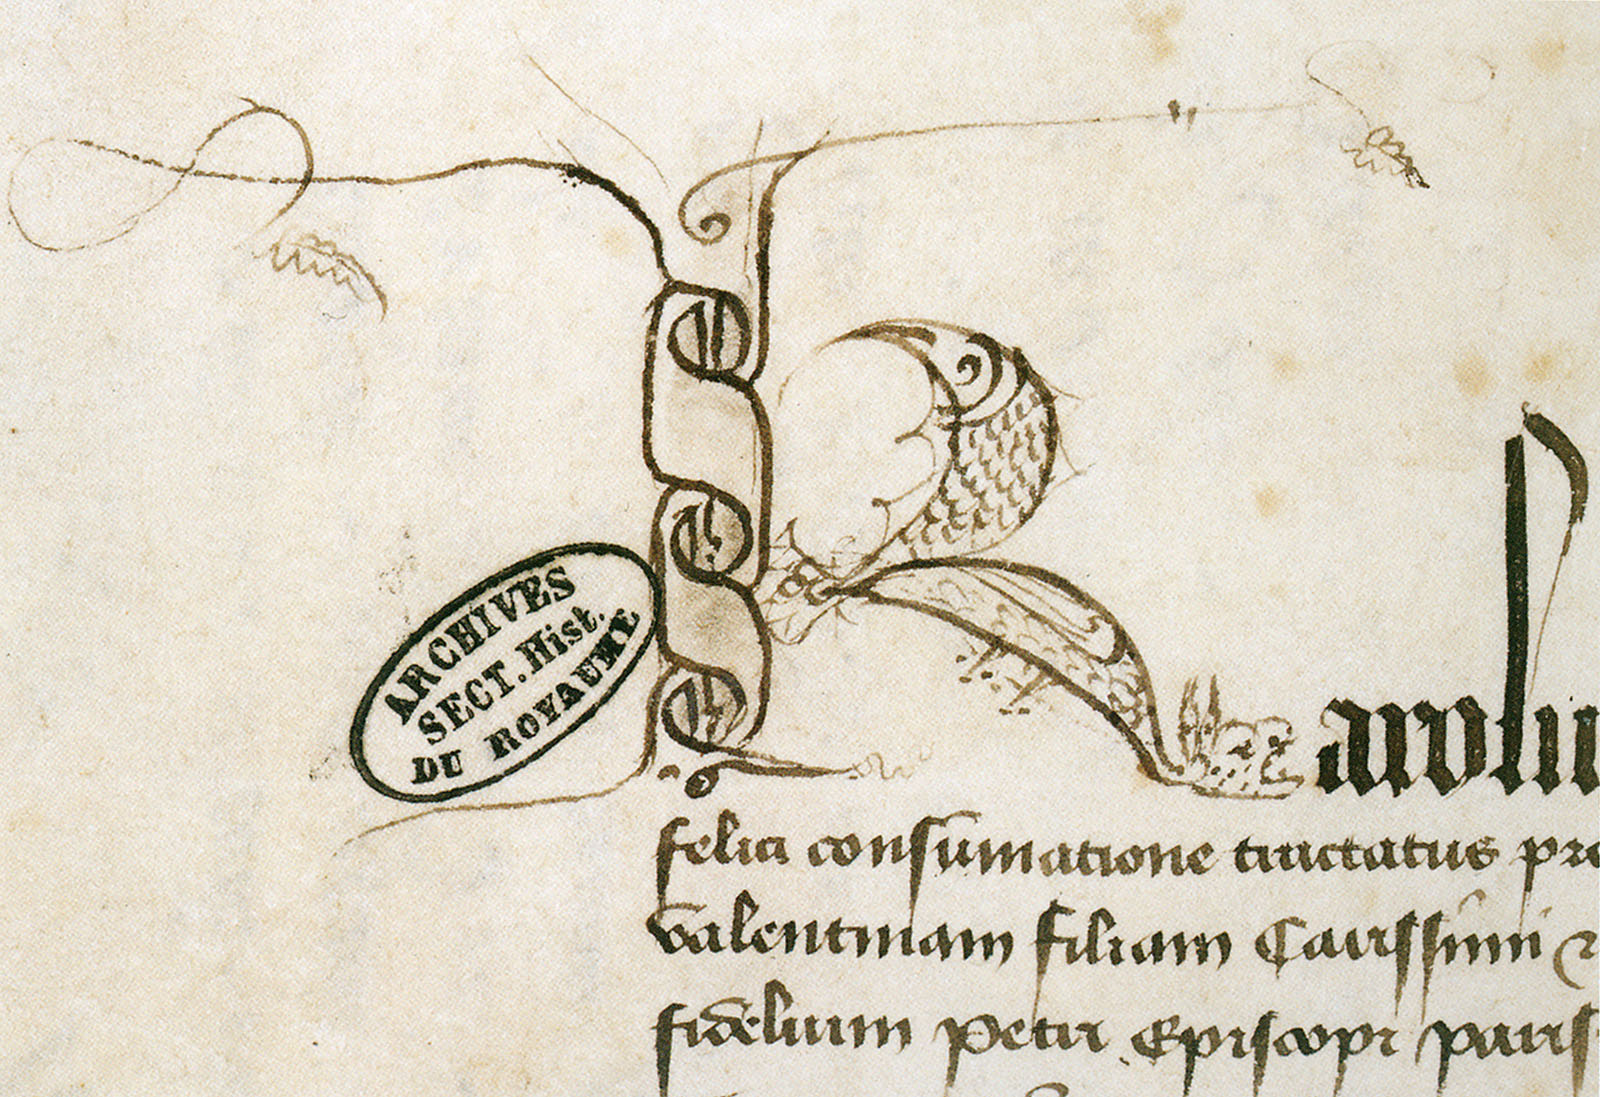 ARCHIVES
SECT. Hist.
DU ROYAUME
Karolu
felici consumatione tractatus pre
valentinam filiam Carissimi
fidelium petri Episcopi paris